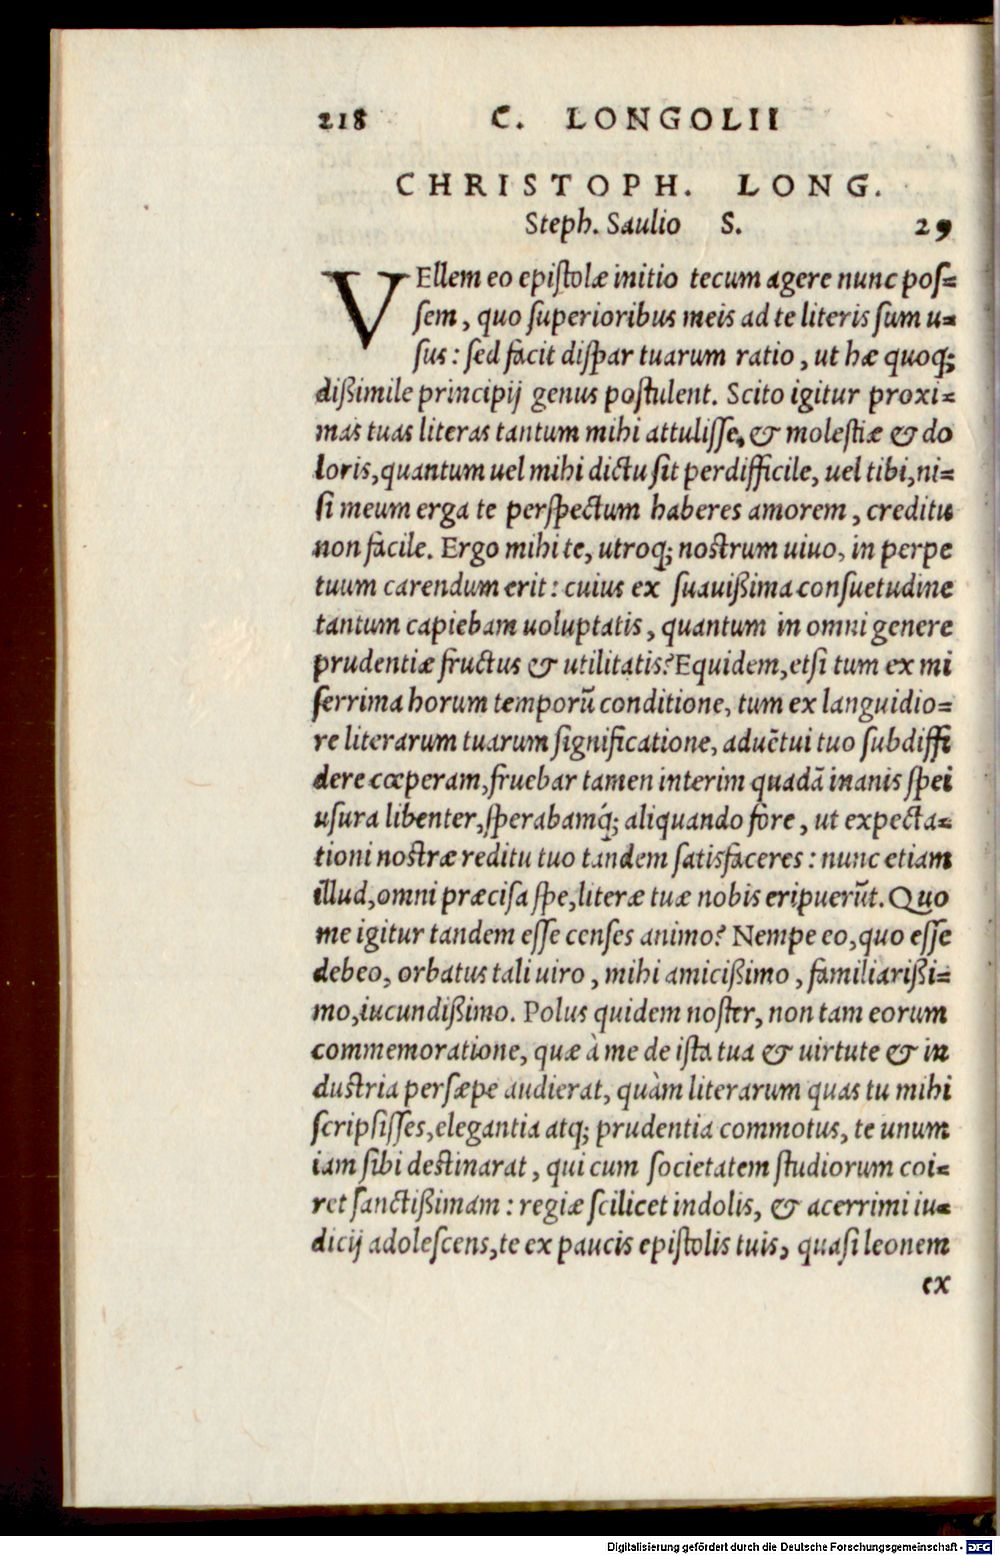 218 C. LONGOLII
CHRISTOPH. LONG.
Steph. Saulio S. 29
VEllem eo epiſtolæ initio tecum agere nunc poſ=
ſem, quo ſuperioribus meis ad te literis ſum u=
ſus: ſed facit diſpar tuarum ratio, ut hæ quoq;
dißimile principij genus poſtulent. Scito igitur proxi=
mas tuas literas tantum mihi attuliſſe, & moleſtiæ & do
loris, quantum uel mihi dictu ſit perdifficile, uel tibi, ni=
ſi meum erga te perſpectum haberes amorem, creditu
non facile. Ergo mihi te, utroq; nostrum uiuo, in perpe
tuum carendum erit: cuius ex ſuauißima conſuetudine
tantum capiebam uoluptatis, quantum in omni genere
prudentiæ fructus & utilitatis? Equidem, etſi tum ex mi
ſerrima horum temporū conditione, tum ex languidio=
re literarum tuarum ſignificatione, aduētui tuo ſubdiffi
dere cœperam, fruebar tamen interim quadā inanis ſpei
uſura libenter, ſperabamq́; aliquando fore, ut expecta=
tioni nostræ reditu tuo tandem ſatisfaceres: nunc etiam
illud, omni præciſa ſpe, literæ tuæ nobis eripuerūt. Quo
me igitur tandem eſſe cenſes animo? Nempe eo, quo eſſe
debeo, orbatus tali uiro, mihi amicißimo, familiarißi=
mo, iucundißimo. Polus quidem noſter, non tam eorum
commemoratione, quæ à me de iſta tua & uirtute & in
dustria perſæpe audierat, quàm literarum quas tu mihi
ſcripſiſſes, elegantia atq; prudentia commotus, te unum
iam ſibi destinarat, qui cum ſocietatem ſtudiorum coi=
ret ſanctißimam: regiæ ſcilicet indolis, & acerrimi iu=
dicij adoleſcens, te ex paucis epiſtolis tuis, quaſi leonem
ex
Digitalisierung gefördert durch die Deutsche Forschungsgemeinschaft - DFG